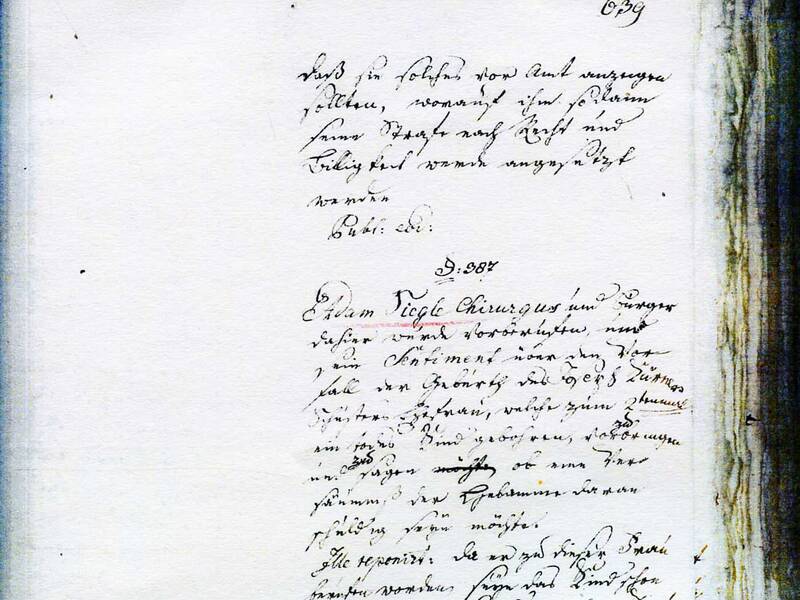 639
daß sie solches vor Amt anzeigen
sollten, worauf ihm sodann
seine Strafe nach Recht und
Billigkeit werde angesetzt
werden
Publ: eod:
§: 387
Adam Siegle Chirurgus und Burger
dahier wurde vorberufen, und
sein Sentiment über den Vor-
fall der Geburth des
Schusters Ehefrau, welche zum 2tenmal
ein todes Kind gebohren, vorbringen
und sagen möchte ob eine Ver-
säumniß der Hebamme daran
schuldig seyn möchte.
Ille reponirt: da er zu dieser Frau
beruffen worden, seye das Kind schon